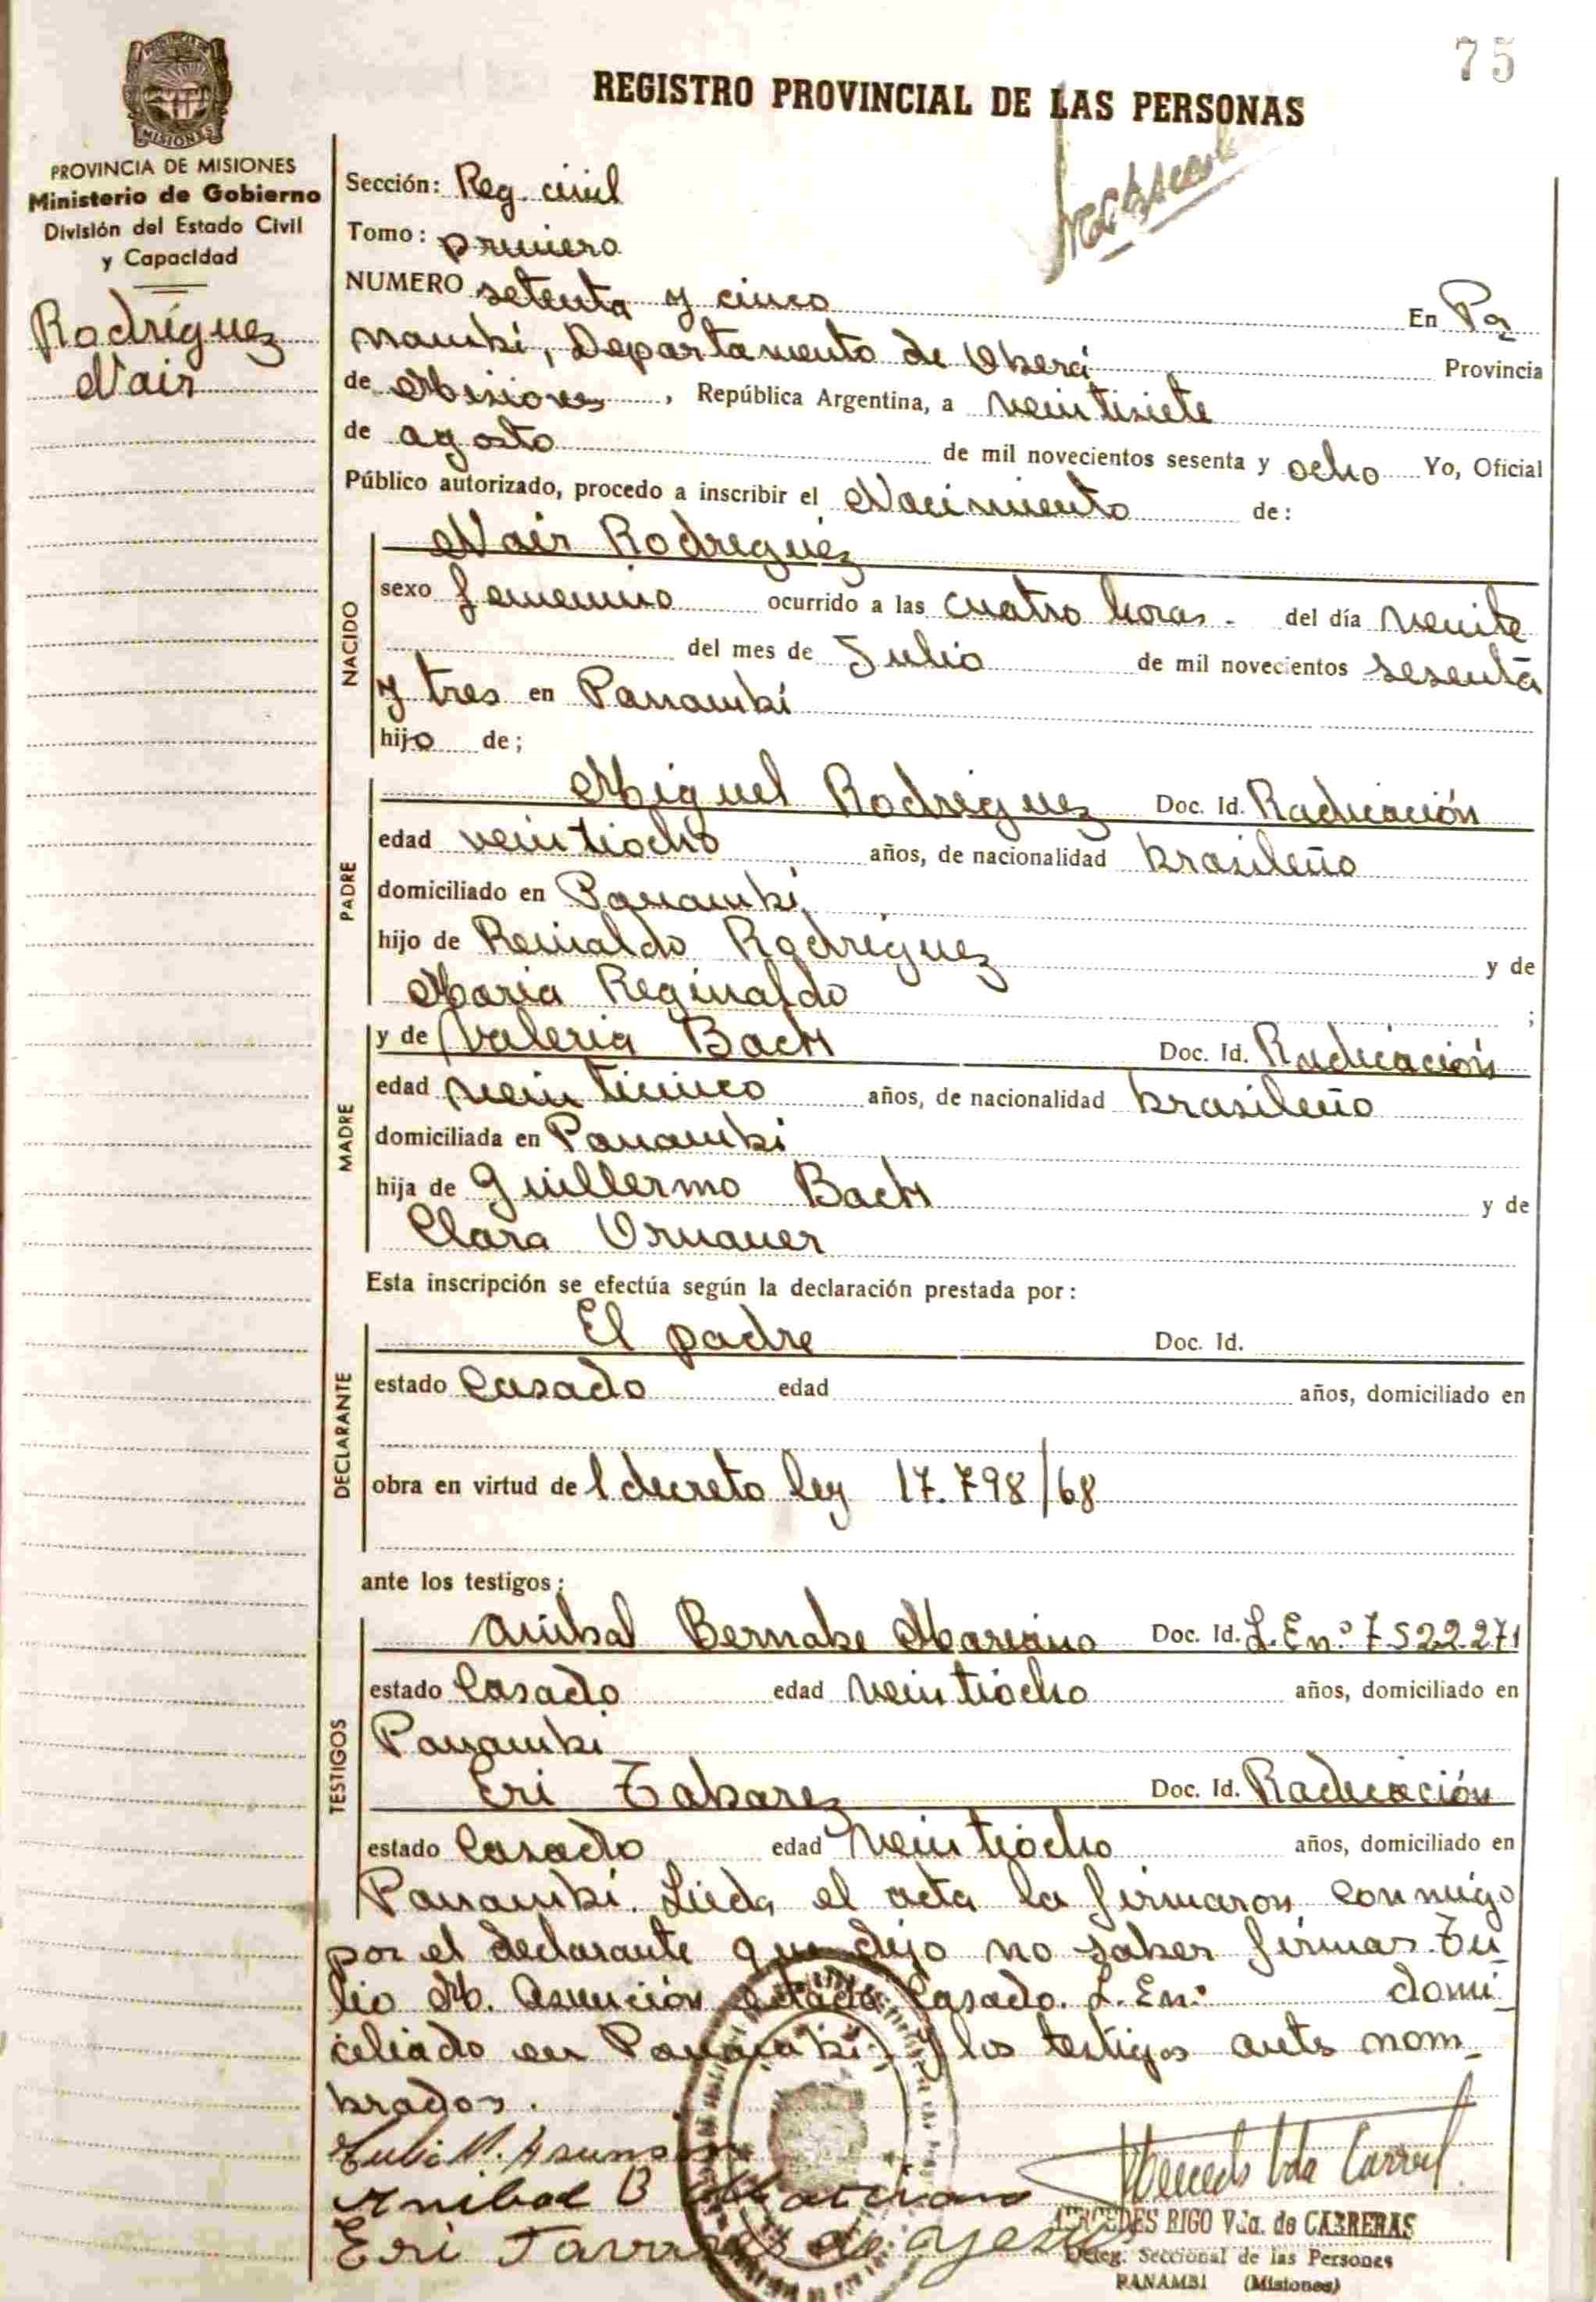 75
REGISTRO PROVINCIAL DE LAS PERSONAS
MISIONES
PROVINCIA DE MISIONES
Ministerio de Gobierno
División del Estado Civil
y Capacidad
Rodríguez
Nair
Sección: Reg. civil
Tomo: primero
NUMERO setenta y cinco En Pa
nambí, Departamento de Oberá Provincia
de Misiones, República Argentina, a veintisiete
de agosto de mil novecientos sesenta y ocho Yo, Oficial
Público autorizado, procedo a inscribir el Nacimiento de:
NACIDO
Nair Rodríguez
sexo femenino ocurrido a las cuatro horas - del día veinte
del mes de Julio de mil novecientos sesenta
y tres en Panambí
hijo de;
PADRE
Miguel Rodríguez Doc. Id. Radicación
edad veintiocho años, de nacionalidad brasileño
domiciliado en Panambí
hijo de Reinaldo Rodríguez y de
Maria Reginaldo ;
MADRE
y de Valeria Bach Doc. Id. Radicación
edad veinticinco años, de nacionalidad brasileño
domiciliada en Panambí
hija de Guillermo Bach y de
Clara Ornauer
Esta inscripción se efectúa según la declaración prestada por:
DECLARANTE
El padre Doc. Id.
estado Casado edad años, domiciliado en
obra en virtud de l decreto ley 17.798/68
ante los testigos:
TESTIGOS
Anibal Bernabe Mariano Doc. Id. L. En.º 7522271
estado Casado edad veintiocho años, domiciliado en
Panambí
Eri Tabarez Doc. Id. Radicación
estado Casado edad veintiocho años, domiciliado en
Panambí. Leída el acta la firmaron conmigo
por el declarante que dijo no saber firmar Tu
lio M. Asunción estado Casado. L. En: domi
ciliado en Panambí y los testigos ante nom
brados.
Tulio M. Asunción
Anibal B Mariano
Eri Tavares de
MERCEDES RIGO Vda. de CARRERAS
Deleg. Seccional de las Personas
PANAMBI (Misiones)